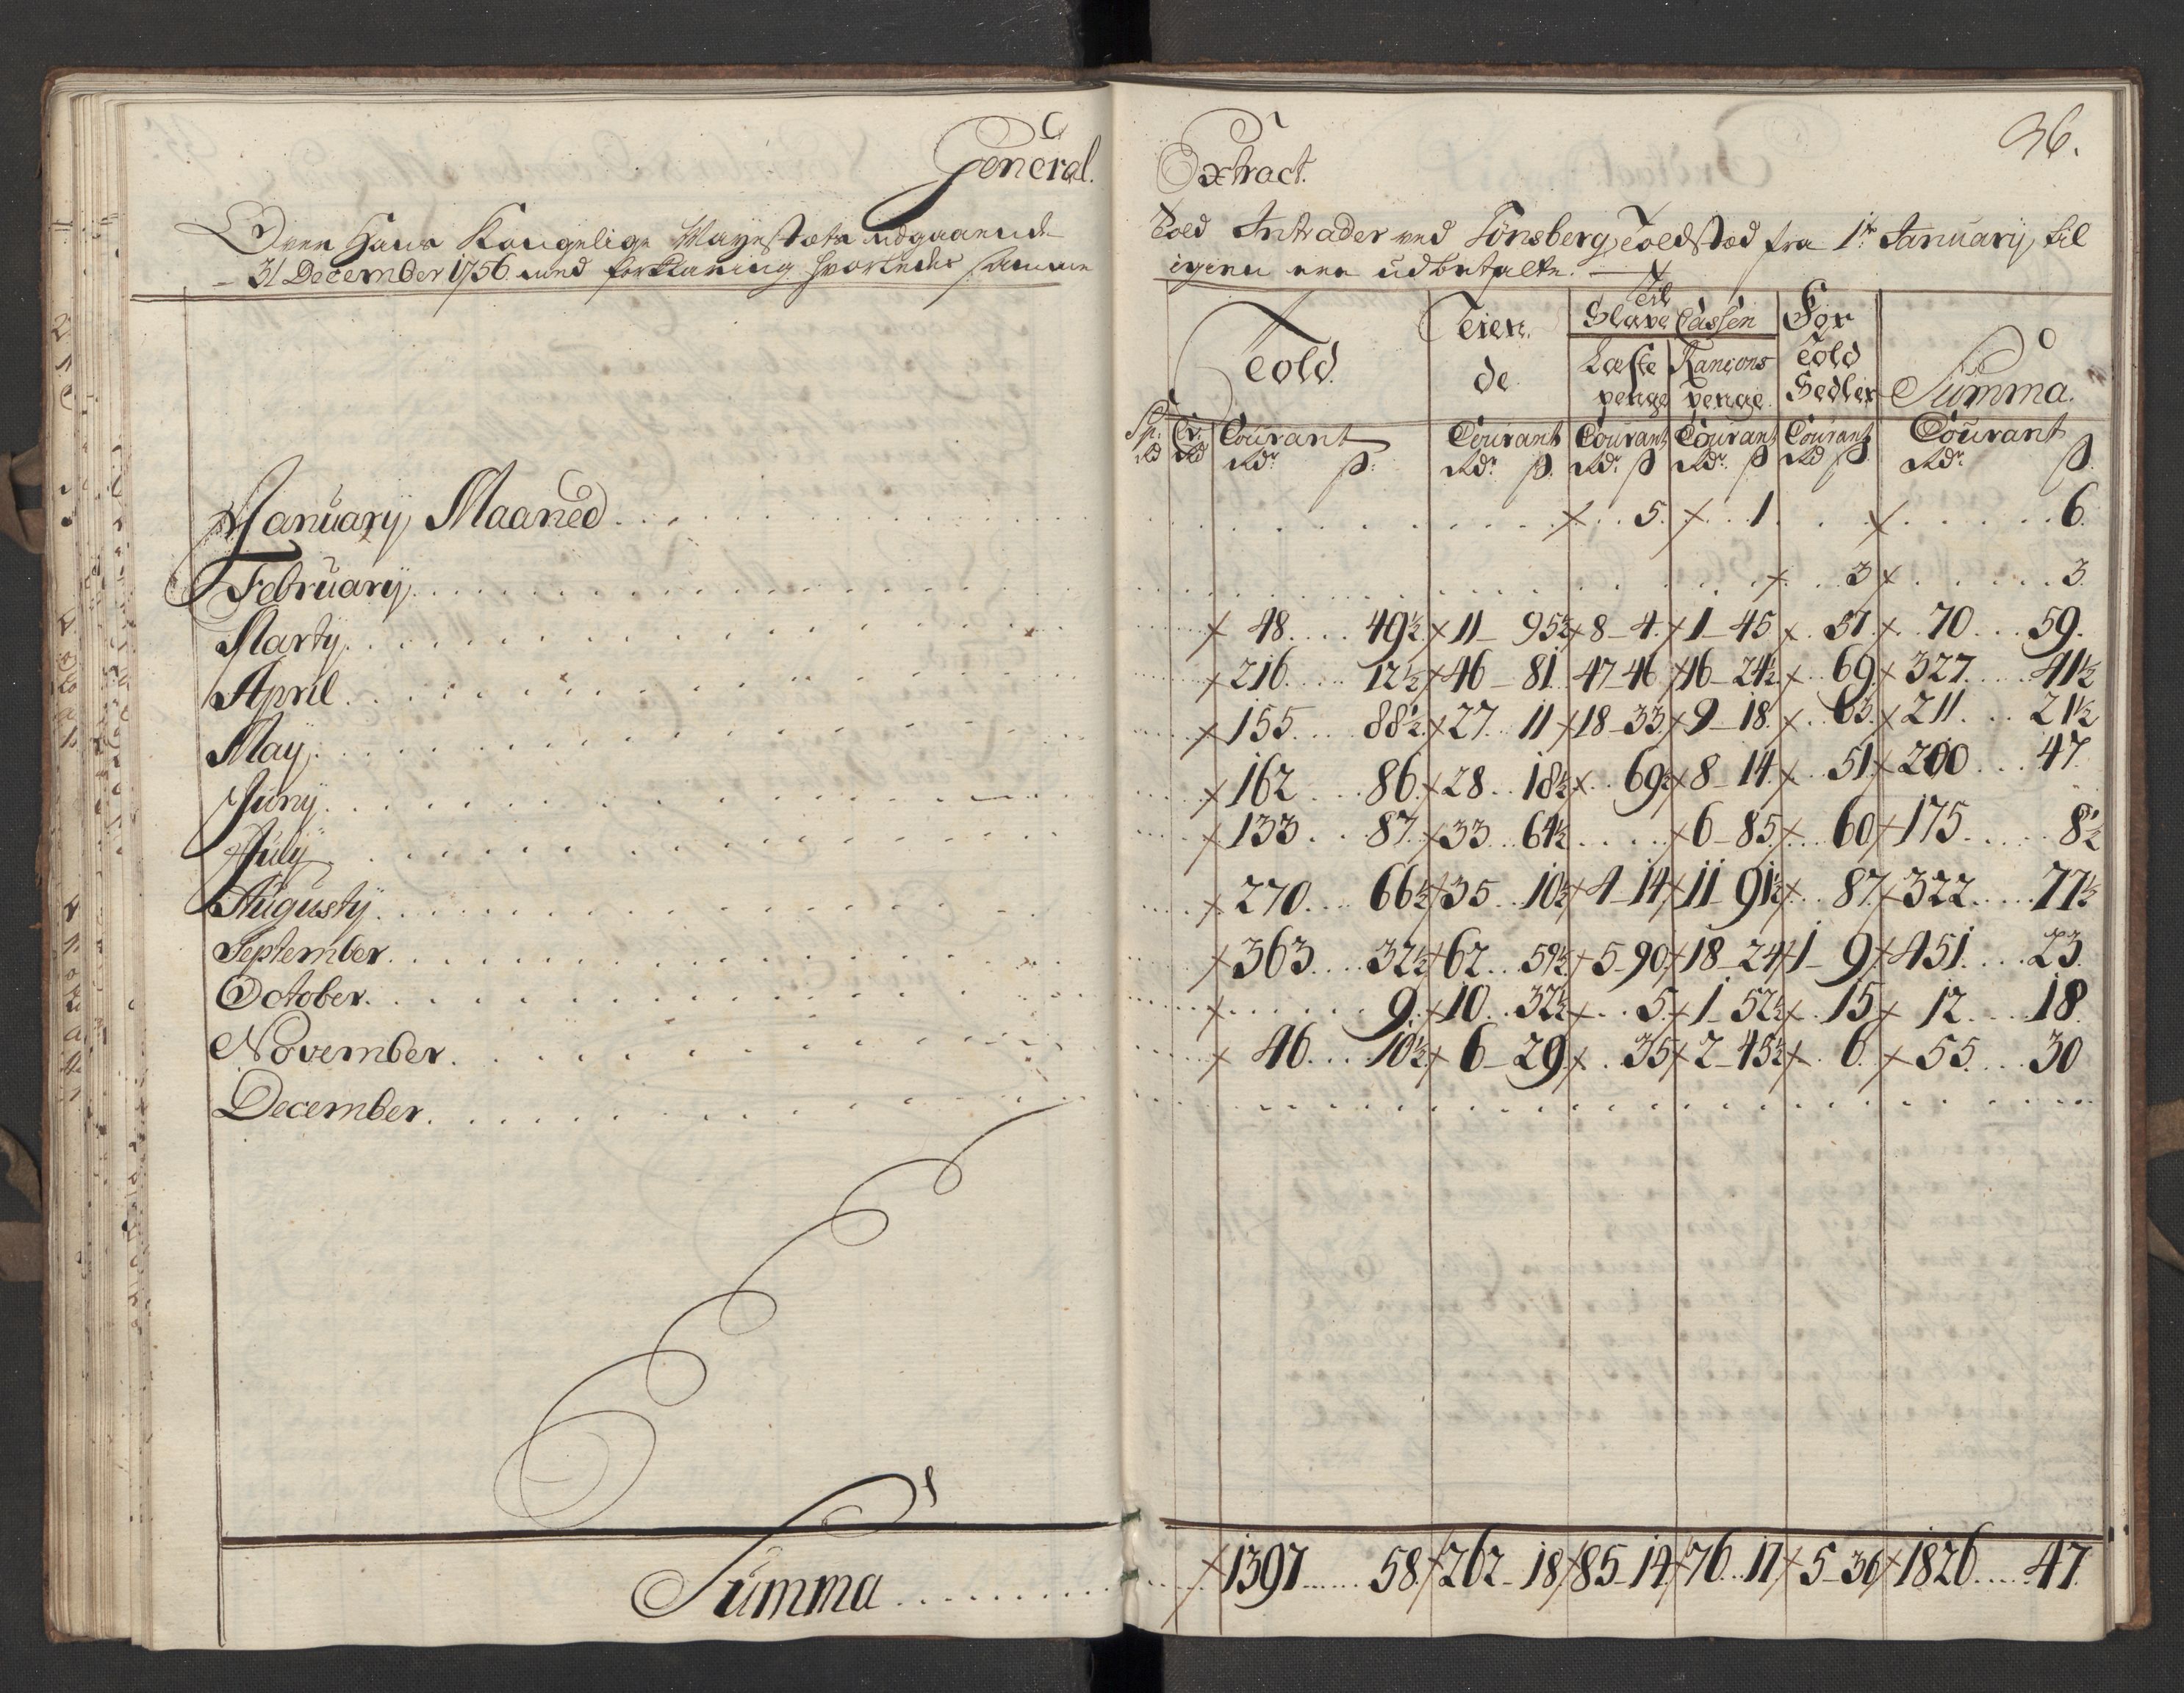 General. Extract.
36.
Over Hans Kongelige Mayestets udgaaende Told Intrader ved Tönsberg Toldsted fra 1te January til
31 December 1756 med forklaring hvorledes samme igien ere udbetalte.
Told. Teien de. Til Slave Cassen For Told Sedler Summa.
Læste penge Rançons penge.
Sp: Rd Cr. Rd Courant Courant Courant Courant Courant Courant
Rdr ß. Rdr ß. Rdr ß Rdr ß Rd ß. Rdr ß.
January Maaned . . . 5. 1. 6.
February . . . 3 3.
Marty . . . 48. 49½. 11_ 95½ 8_4. 1_45 57. 70. 59.
April . . . 216. 12½ 46_81. 47_46. 16_24½ 69. 327. 41½
May . . . 155. 88½. 27. 11 18_33. 9_18. 63. 211. 21½
Juny . . . 162 86. 28. 18½ 69½ 8_14. 51. 200. 47.
July . . . 133. 87. 33. 64½ 6_85. 60 175. 8½
Augusty . . . 270. 66½ 35. 10½ 4_14. 11_91½ 87. 322. 77½
September . . . 363. 32½ 62. 59½ 5_90. 18_24. 1_9. 451. 23.
October . . . 9. 10. 32½ 5. 1_52½ 15. 12. 18.
November . . . 46. 10½. 6_29. 35 2_45½ 6. 55. 30
December . . .
Summa . . . 1397. 58. 262_18. 85_14. 76. 17. 5_36. 1826. 47.